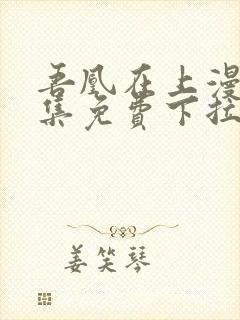 吾凰在上漫
集免费下拉
姜笑琴